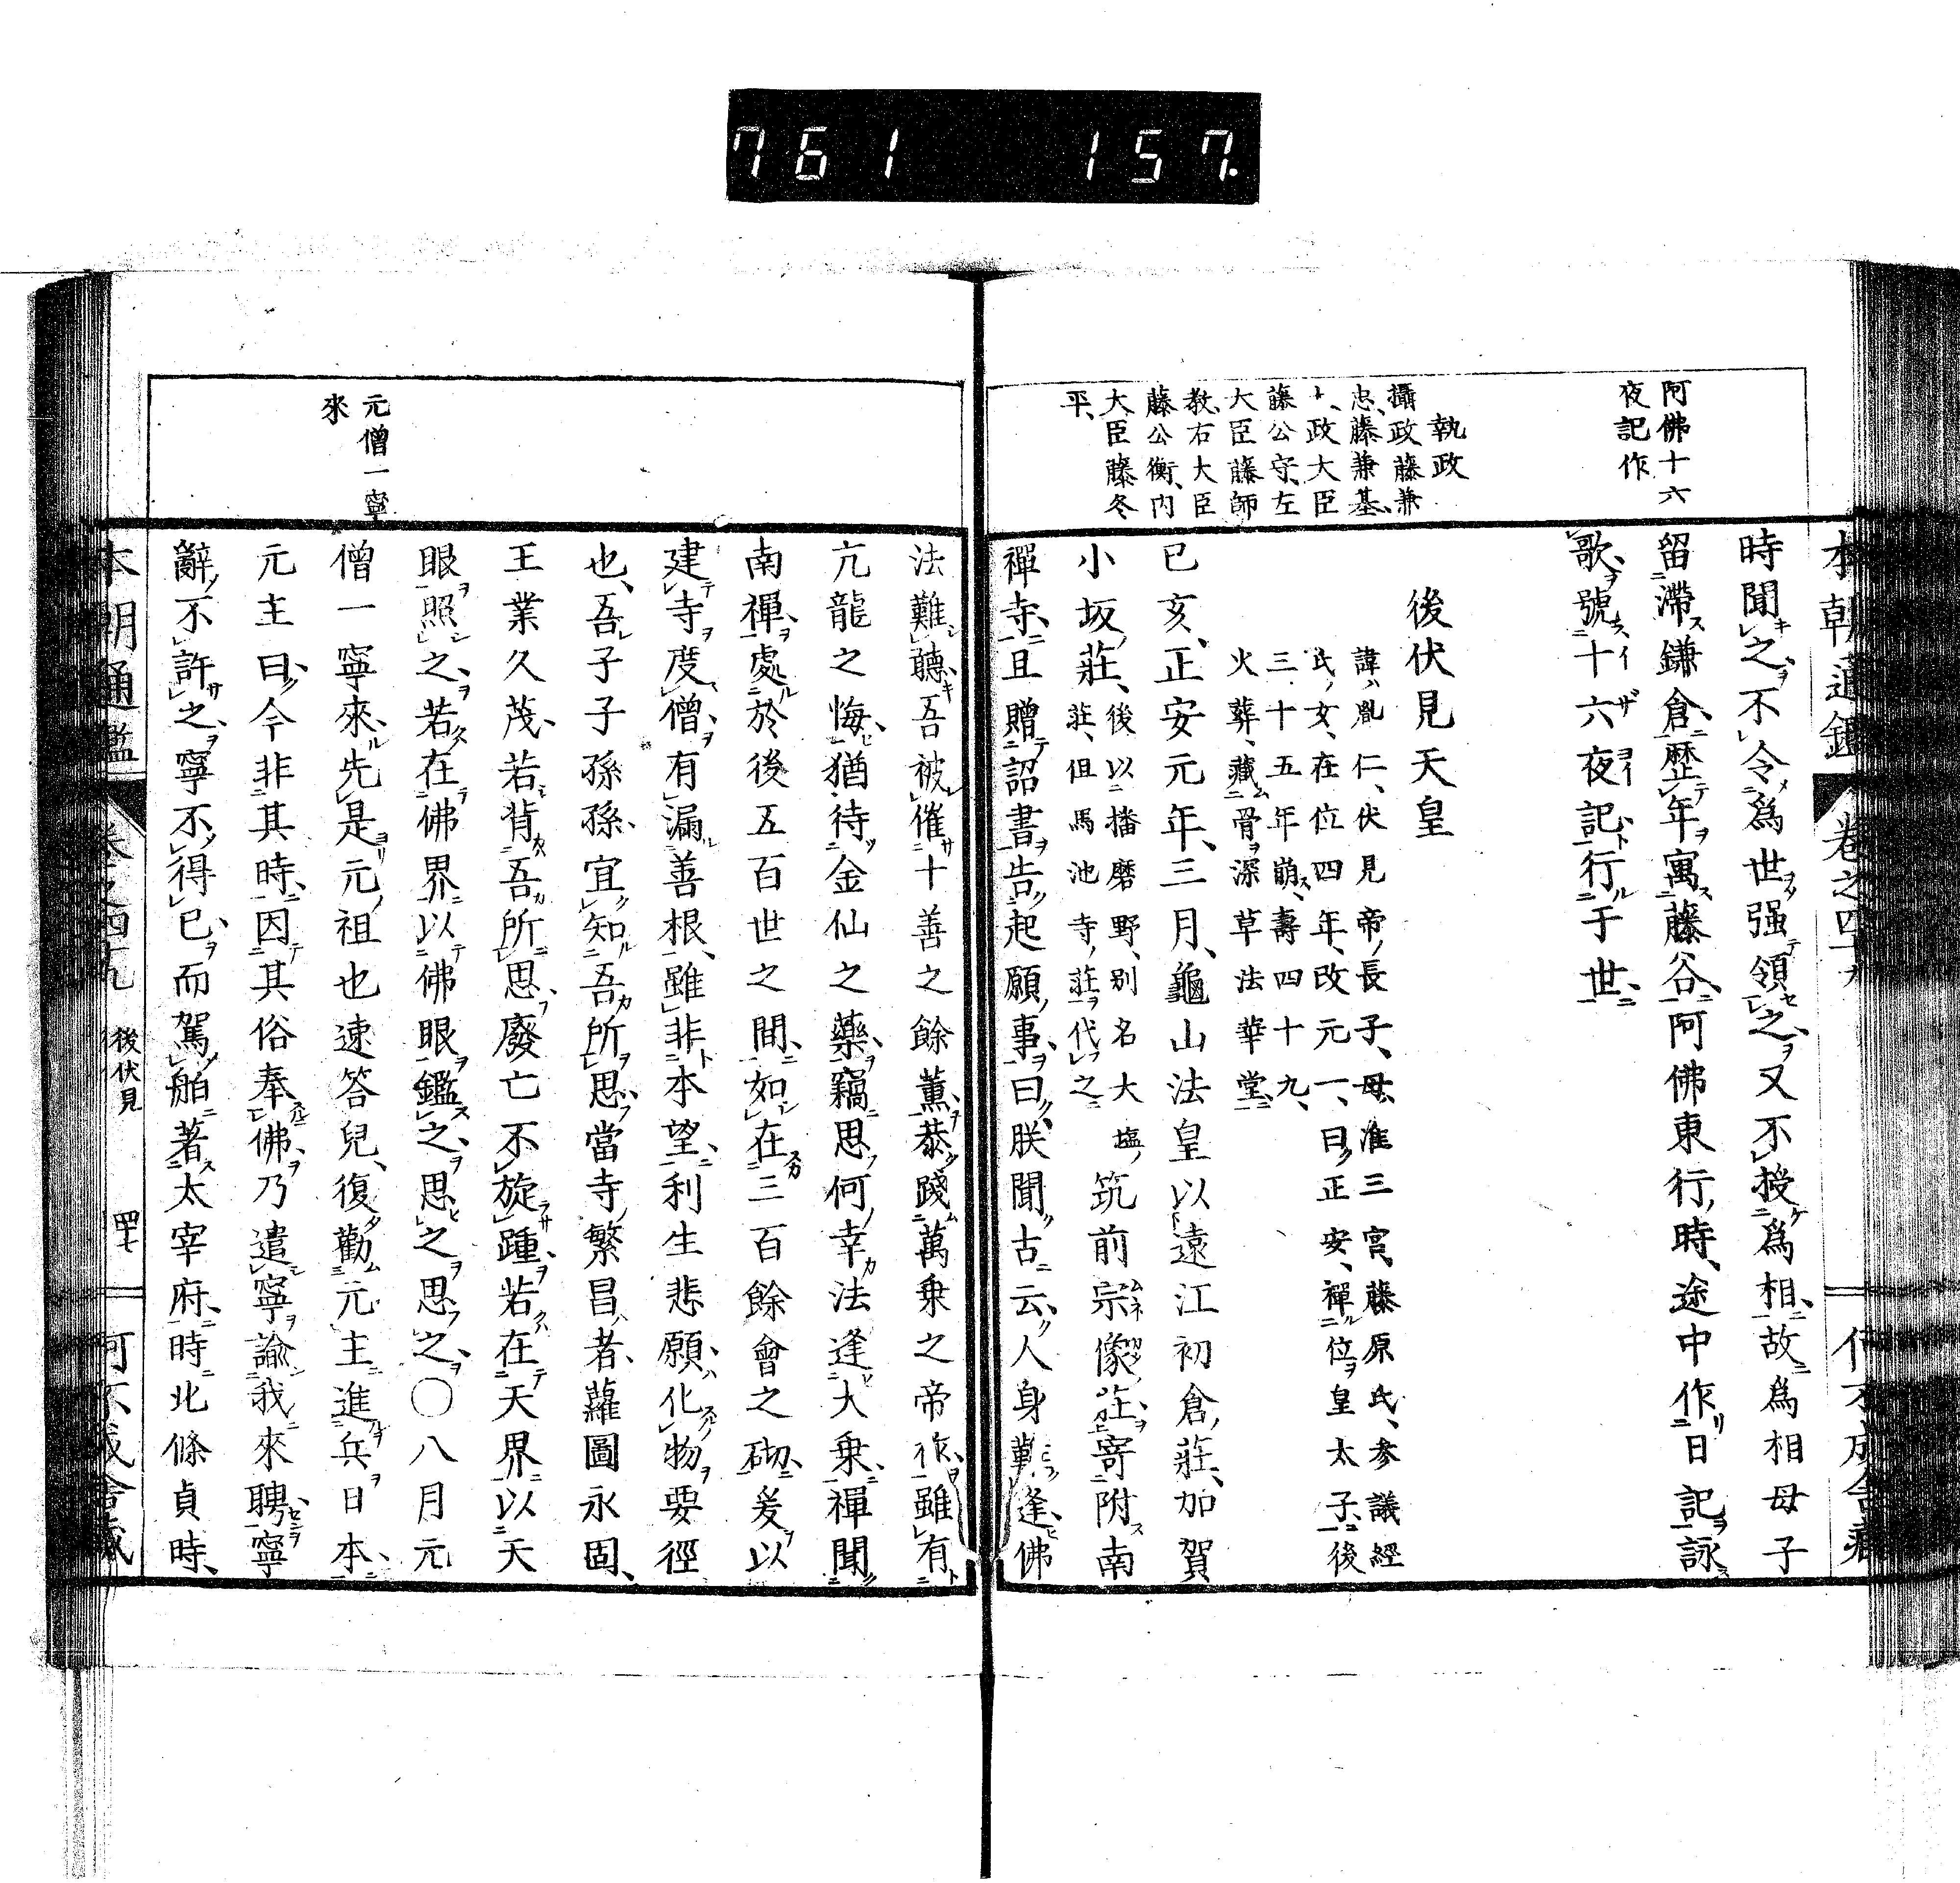 761 157
阿佛十六
夜記作
時聞之不令爲世强領之又不授爲相故爲相母子
留滯鎌倉歴年寓藤谷阿佛東行時途中作日記詠
歌號十六夜記行于世
執政
攝政藤兼
忠藤兼基
政大臣
藤公守左
大臣藤師
教右大臣
藤公衡内
大臣藤冬
平
後伏見天皇
諱胤仁伏見帝長子母准三宮藤原氏參議經
氏女在位四年改元一曰正安禪位皇太子後
三十五年崩壽四十九
火葬藏骨深草法華堂
已亥正安元年三月龜山法皇以遠江初倉莊加賀
小坂莊後以播磨野別名大塩莊但馬池寺莊代之筑前宗像莊寄附南
禪寺且贈詔書告起願事曰朕聞古云人身難逢佛
法難聽吾被催十善之餘薫恭踐萬乗之帝祚雖有
亢龍之悔猶待金仙之藥竊思何幸法逢大乗禪聞
南禪處於後五百世之間如在三百餘會之砌爰以
建寺度僧有漏善根雖非本望利生悲願化物要徑
也吾子子孫孫宜知吾所思當寺繁昌者蘿圖永固
王業久茂若背吾所思廢亡不旋踵若在天界以天
眼照之若在佛界以佛眼鑑之思之思之〇八月元
元僧一寧
來
僧一寧來先是元祖也速答兒復勸元主進兵日本
元主曰今非其時因其俗奉佛乃遣寧諭我來聘寧
辭不許之寧不得已而駕舶著太宰府時北條貞時
本朝通鑑 卷之四十九 後伏見 四七